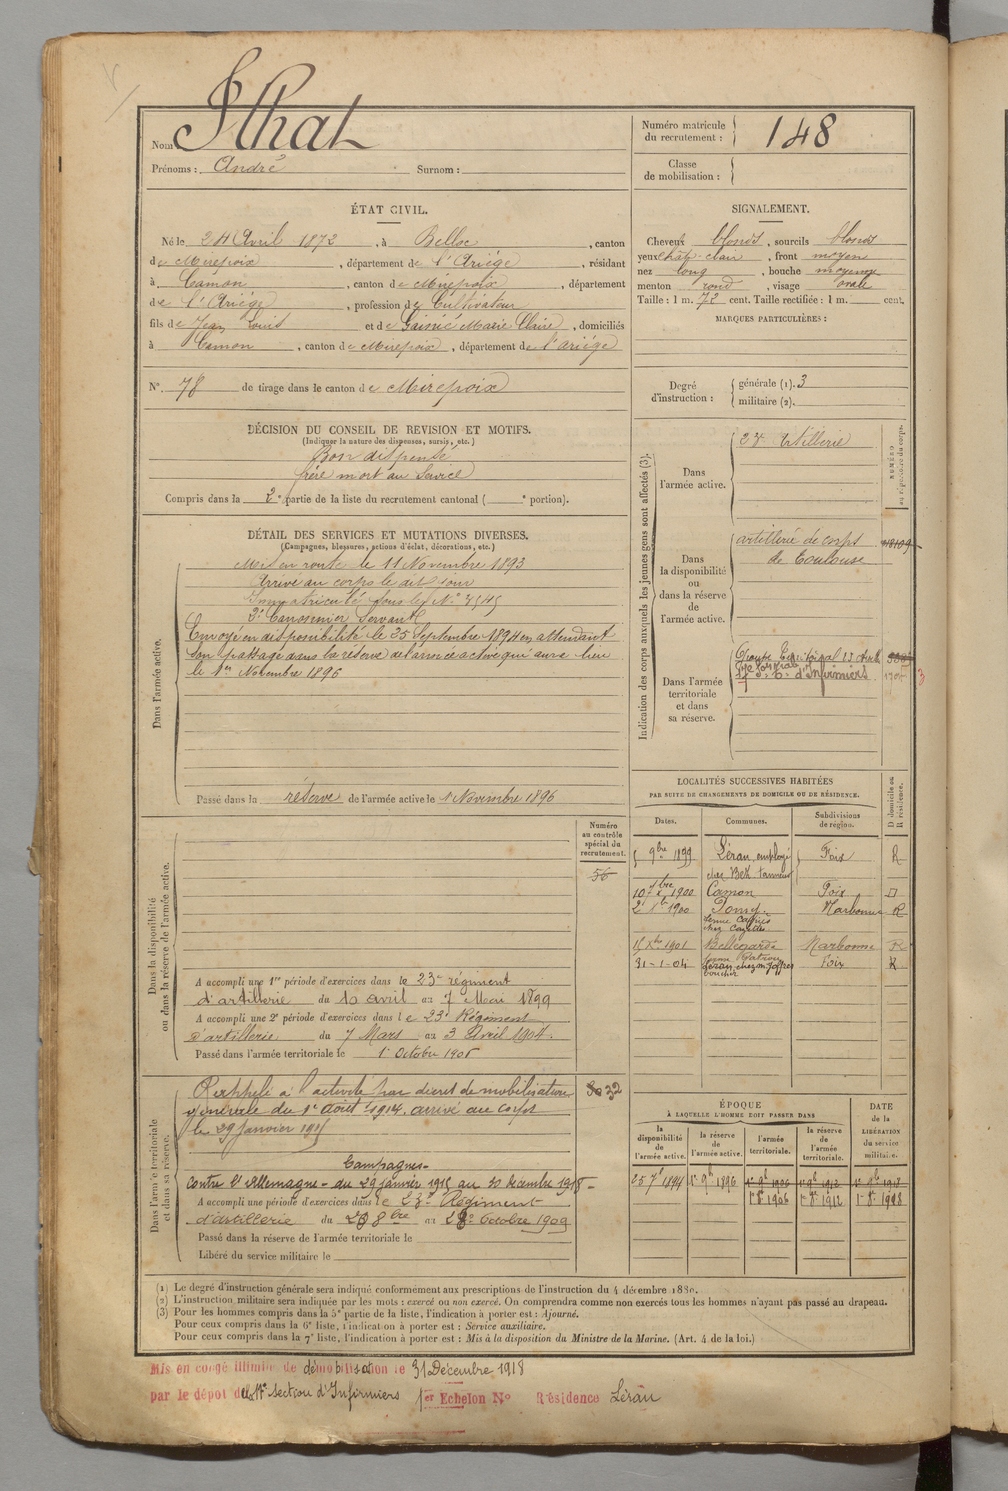 Nom Ilhat
Prénoms : André Surnom :
Numéro matricule du recrutement : 148
Classe de mobilisation :
ÉTAT CIVIL.
Né le 24 Avril 1872, à Belloc, canton
de Mirepoix, département de l'Ariège, résidant
à Camon, canton de Mirepoix, département
de l'Ariège, profession de Cultivateur
fils de Jean Louis et de Marie Claire, domiciliés
à Camon, canton de Mirepoix, département de l'ariège
N° 78 de tirage dans le canton de Mirepoix
SIGNALEMENT.
Cheveux blonds, sourcils blonds
yeux chât. clair, front moyen
nez long, bouche moyenne
menton rond, visage ovale
Taille : 1 m. 72 cent. Taille rectifiée : 1 m. cent.
MARQUES PARTICULIÈRES :
Degré d'instruction : générale (1). 3
militaire (2).
DÉCISION DU CONSEIL DE REVISION ET MOTIFS.
(Indiquer la nature des dispenses, sursis, etc.)
Bon dispensé
frère mort au service
Compris dans la 2e partie de la liste du recrutement cantonal ( e portion).
DÉTAIL DES SERVICES ET MUTATIONS DIVERSES.
(Campagnes, blessures, actions d'éclat, décorations, etc.)
Dans l'armée active.
Mis en route le 11 Novembre 1893
Arrivé au corps le dit jour
Immatriculé sous le N° 4545
2e Canonnier Servant
Envoyé en disponibilité le 25 Septembre 1894 en attendant
son passage dans la réserve de l'armée active qui aura lieu
le 1er Novembre 1896
Passé dans la réserve de l'armée active le 1 Novembre 1896
Indication des corps auxquels les jeunes gens sont affectés (3).
NUMÉRO au répertoire du corps.
Dans l'armée active.
23e Artillerie
Dans la disponibilité ou dans la réserve de l'armée active.
artillerie de corps
de Toulouse
Dans l'armée territoriale et dans sa réserve.
Groupe Territorial 23 Artie
17e Son d'Infirmiers
LOCALITÉS SUCCESSIVES HABITÉES
PAR SUITE DE CHANGEMENTS DE DOMICILE OU DE RÉSIDENCE.
Dates. Communes. Subdivisions de région. D domicile ou R résidence.
5 9bre 1899 Léran, employé chez Bez tanneur Foix R
10 7bre 1900 Camon Foix D
2 Xbre 1900 Narbonne R
15 Xbre 1901 Bellegarde Narbonne R
31-1-04 Léran, chez M. Joffres boucher Foix R
Dans la disponibilité ou dans la réserve de l'armée active.
Numéro au contrôle spécial du recrutement.
56
A accompli une 1re période d'exercices dans le 23e régiment
d'artillerie du 10 avril au 7 Mai 1899
A accompli une 2e période d'exercices dans le 23e Régiment
d'artillerie du 7 Mars au 3 Avril 1904.
Passé dans l'armée territoriale le 1 Octobre 1906
Dans l'armée territoriale et dans sa réserve.
32
Rappelé à l'activité par décret de mobilisation
générale du 1er Août 1914. arrivé au corps
le 29 Janvier 1915
Campagnes-
Contre l'Allemagne - du 29 janvier 1915 au 30 décembre 1918 -
A accompli une période d'exercices dans le 23e Régiment
d'artillerie du 20 8bre au 28 Octobre 1909
Passé dans la réserve de l'armée territoriale le
Libéré du service militaire le
ÉPOQUE
À LAQUELLE L'HOMME DOIT PASSER DANS
DATE de la LIBÉRATION du service militaire.
la disponibilité de l'armée active. la réserve de l'armée active. l'armée territoriale. la réserve de l'armée territoriale.
25 7e 1894 1er 9bre 1896 1er 9bre 1906 1er 9bre 1912 1er 9bre 1918
1er 8e 1906 1er 8e 1912 1er 8e 1918
(1) Le degré d'instruction générale sera indiqué conformément aux prescriptions de l'instruction du 4 décembre 1889.
(2) L'instruction militaire sera indiquée par les mots : exercé ou non exercé. On comprendra comme non exercés tous les hommes n'ayant pas passé au drapeau.
(3) Pour les hommes compris dans la 5e partie de la liste, l'indication à porter est : Ajourné.
Pour ceux compris dans la 6e liste, l'indication à porter est : Service auxiliaire.
Pour ceux compris dans la 7e liste, l'indication à porter est : Mis à la disposition du Ministre de la Marine. (Art. 4 de la loi.)
Mis en congé illimité de démobilisation le 31 Décembre 1918
par le dépôt de la 17e section d'Infirmiers 1er Echelon N° Résidence Léran